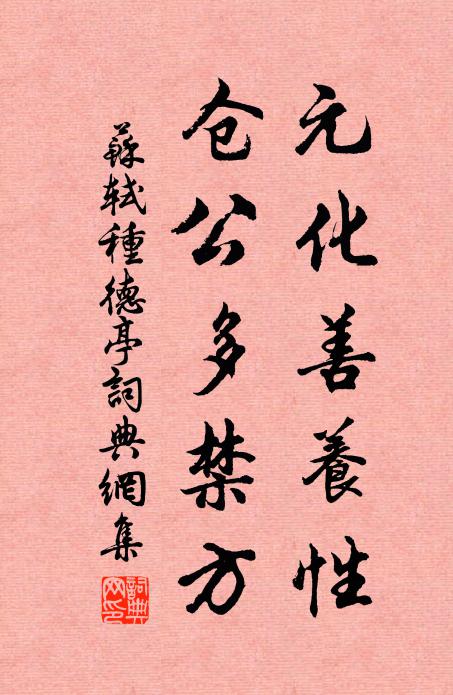 元化善養性
仓公多禁方
蘇軾種德亭詞典網集
詞典網印